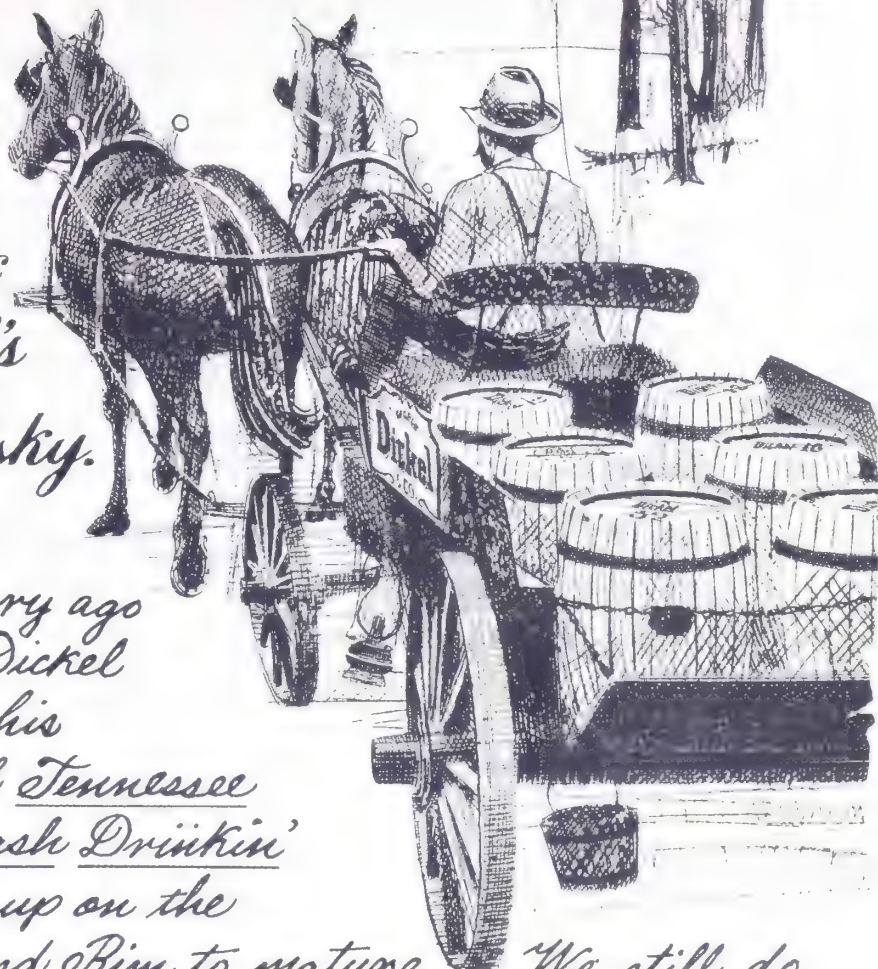 's
sky.
ry ago
Dickel
his
Tennessee
ash Drinkin'
up on the
nd Rim to mature
We still do
Dickel